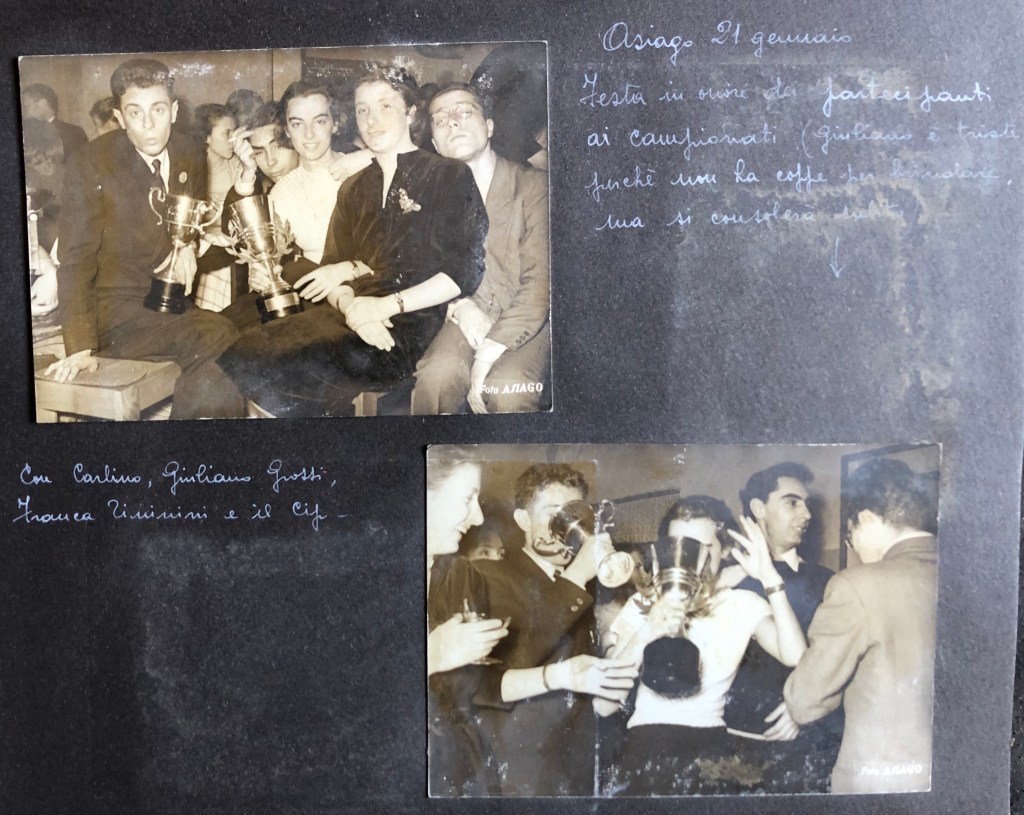 Asiago 21 gennaio
Festa in onore dei partecipanti
ai campionati (Giuliano è triste
perchè non ha coppe per brindare,
ma si consolerà
Foto ASIAGO
Con Carlino, Giuliano Grossi,
Franca Rimini e il Cip -
Foto ASIAGO